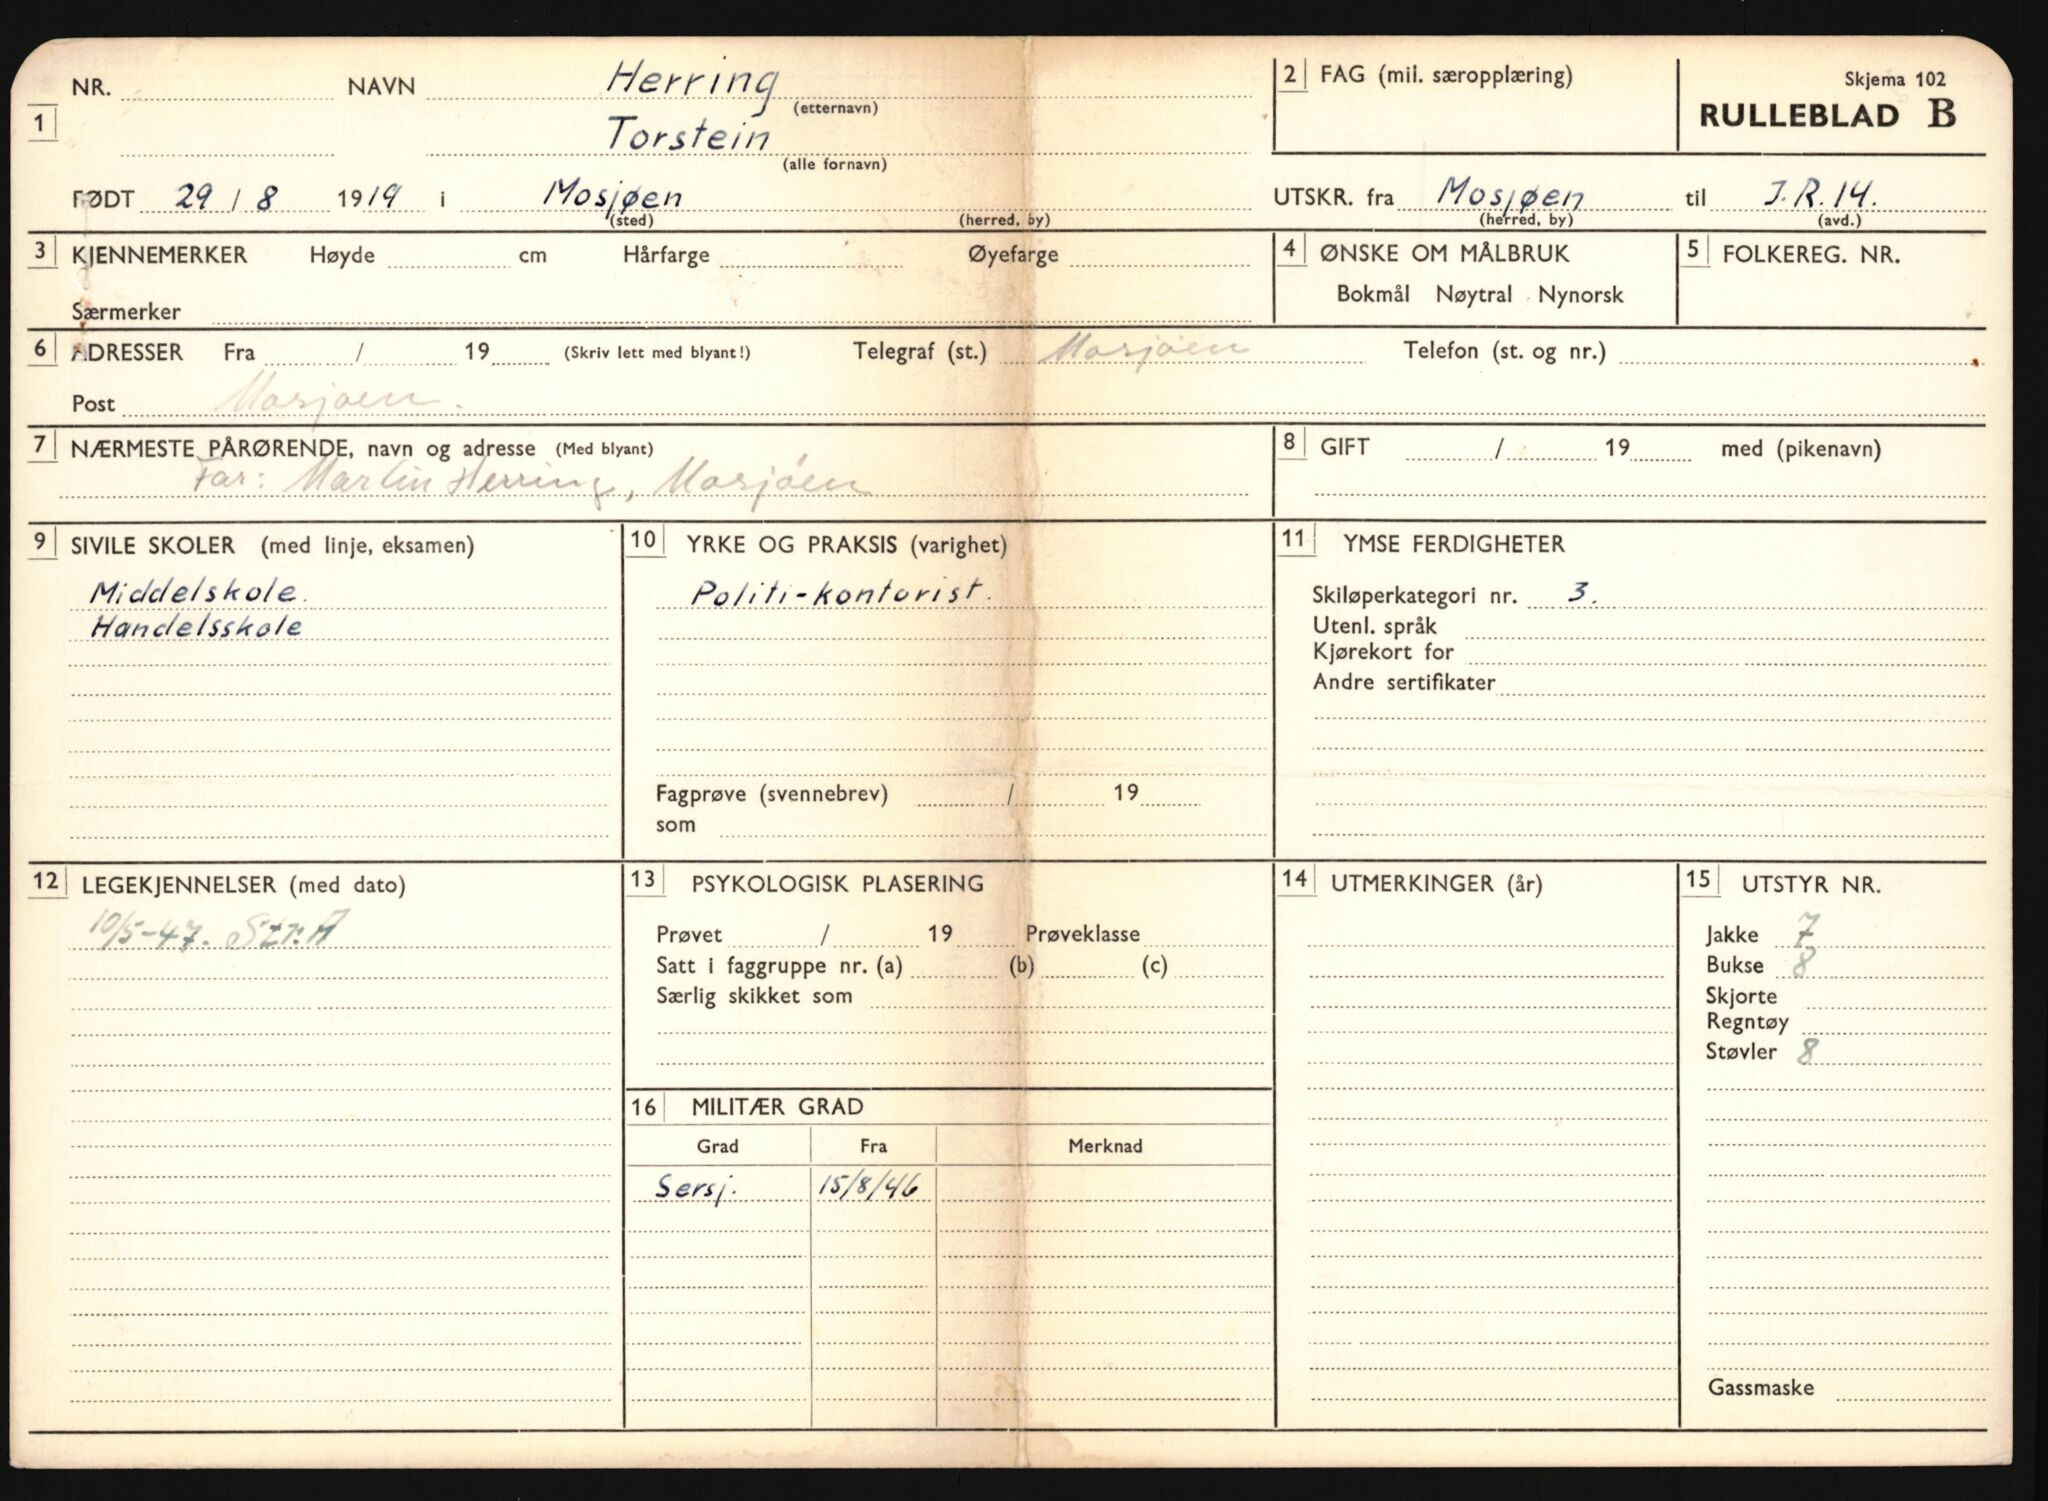 NR. NAVN Herring
(etternavn)
1
Torstein
(alle fornavn)
FØDT 29 / 8 1919 i Mosjøen
(sted) (herred, by)
2 FAG (mil. særopplæring)
Skjema 102
RULLEBLAD B
UTSKR. fra Mosjøen til J.R.14.
(herred, by) (avd.)
3 KJENNEMERKER Høyde cm Hårfarge Øyefarge
Særmerker
4 ØNSKE OM MÅLBRUK
Bokmål Nøytral Nynorsk
5 FOLKEREG. NR.
6 ADRESSER Fra / 19 (Skriv lett med blyant!) Telegraf (st.) Mosjøen Telefon (st. og nr.)
Post Mosjøen.
7 NÆRMESTE PÅRØRENDE, navn og adresse (Med blyant)
Far: Martin Herring, Mosjøen
8 GIFT / 19 med (pikenavn)
9 SIVILE SKOLER (med linje, eksamen)
Middelskole.
Handelsskole
10 YRKE OG PRAKSIS (varighet)
Politi-kontorist.
Fagprøve (svennebrev) / 19
som
11 YMSE FERDIGHETER
Skiløperkategori nr. 3.
Utenl. språk
Kjørekort for
Andre sertifikater
12 LEGEKJENNELSER (med dato)
10/5-47. Str. A
13 PSYKOLOGISK PLASERING
Prøvet / 19 Prøveklasse
Satt i faggruppe nr. (a) (b) (c)
Særlig skikket som
14 UTMERKINGER (år)
15 UTSTYR NR.
Jakke 7
Bukse 8
Skjorte
Regntøy
Støvler 8
Gassmaske
16 MILITÆR GRAD
Grad Fra Merknad
Sersj. 15/8/46